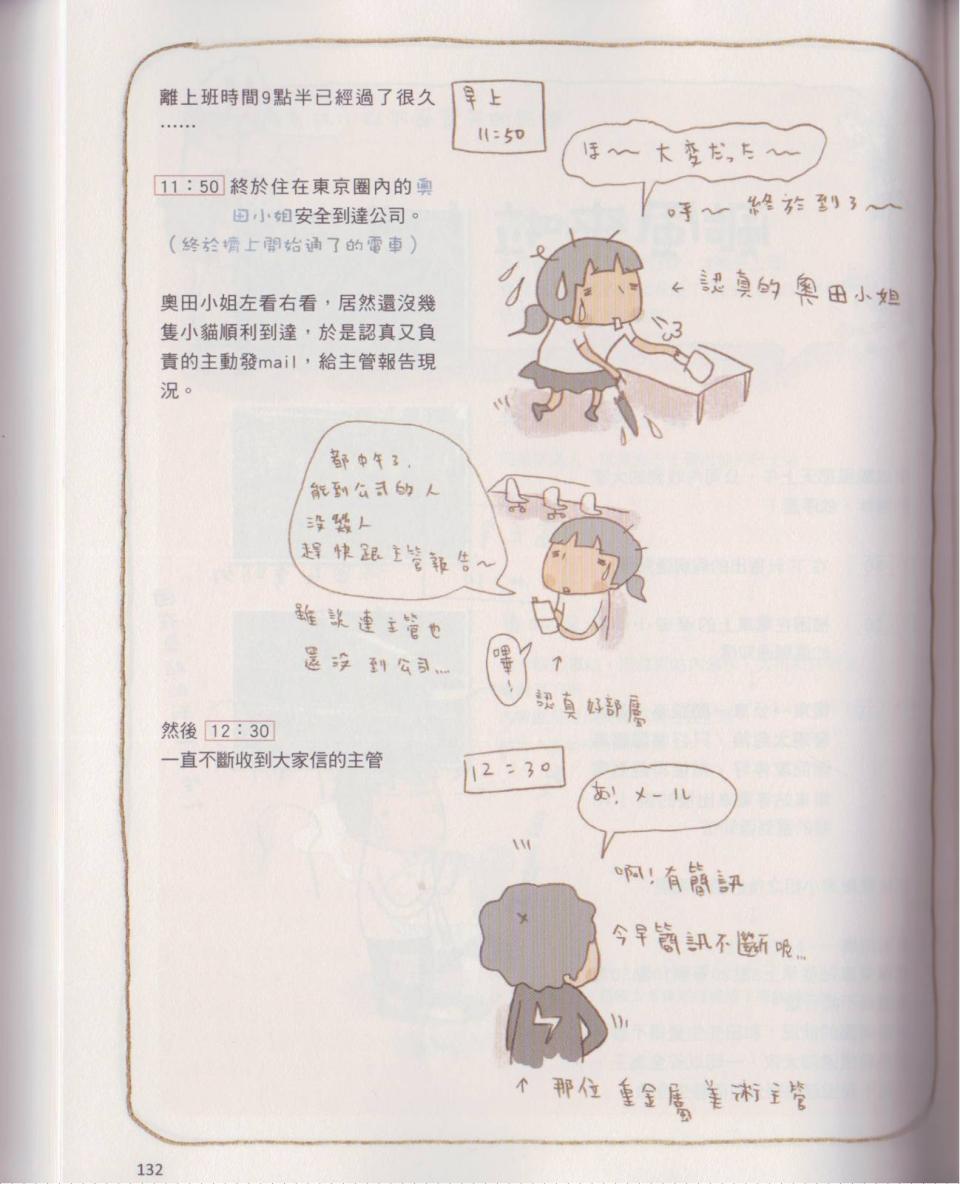 離上班時間9點半已經過了很久
……
早上
11:50
ほ～ 大変だった～
呼～ 終於到了～
11：50 終於住在東京圈內的奧
田小姐安全到達公司。
（終於擠上開始通了的電車）
← 認真的 奧田小姐
奧田小姐左看右看，居然還沒幾
隻小貓順利到達，於是認真又負
責的主動發mail，給主管報告現
況。
都中午了，
能到公司的人
沒幾人
趕快跟主管報告～
雖說連主管也
還沒到公司...
嗶！
↑
認真好部屬
然後 12：30
一直不斷收到大家信的主管
12:30
あ! メール
啊!有簡訊
今早簡訊不斷呢...
↑ 那位 重金屬 美術主管
132